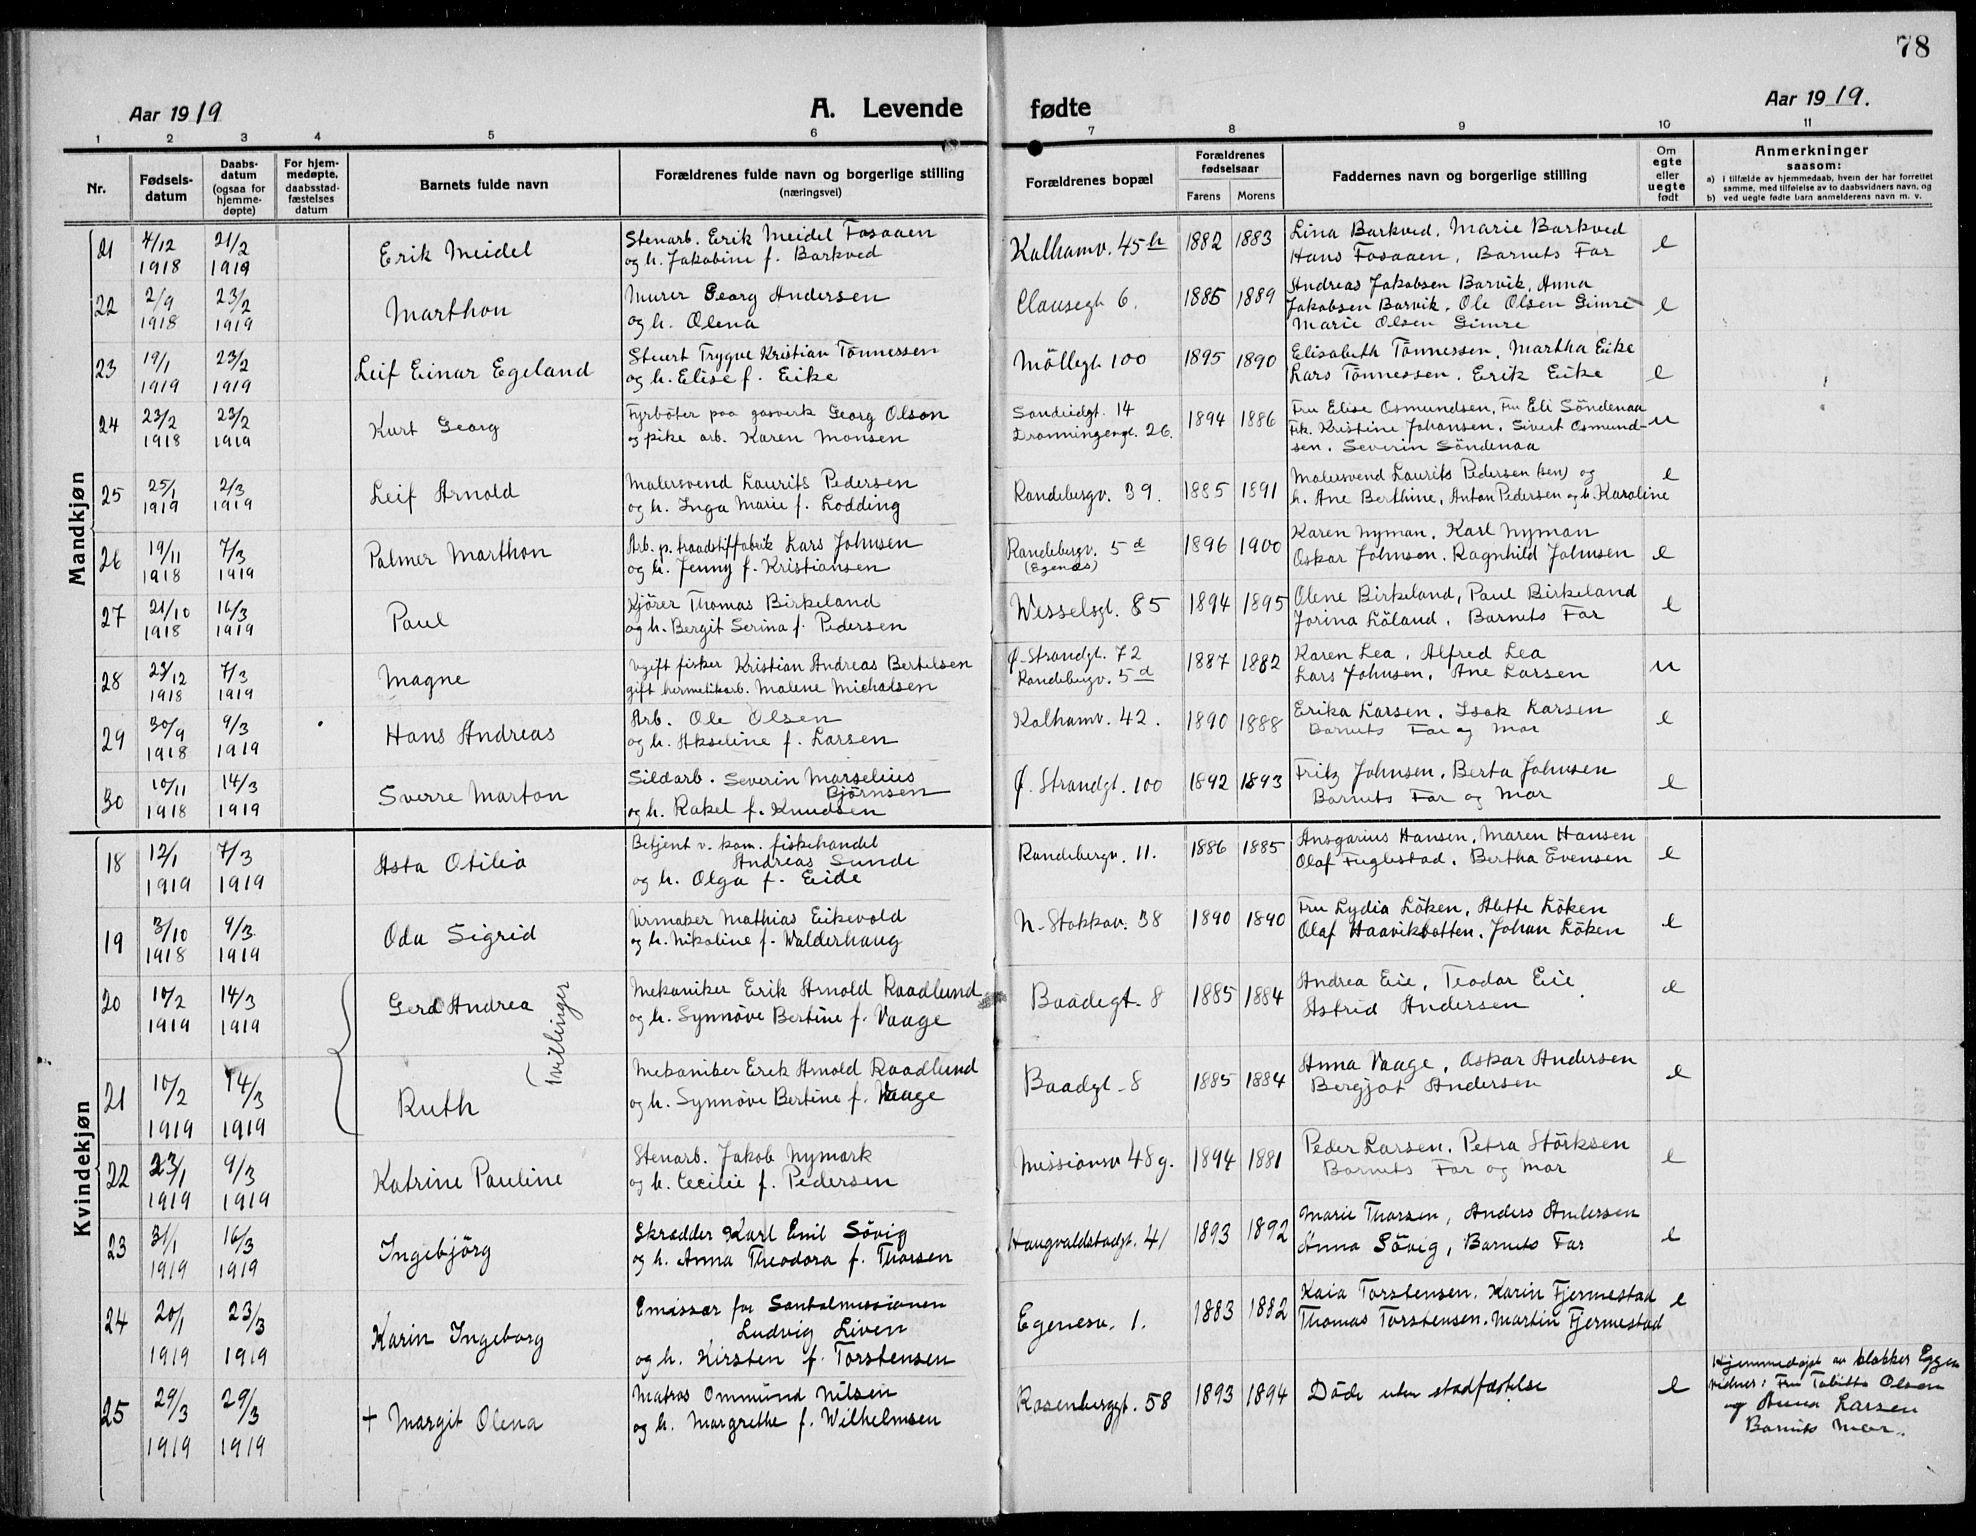 78
Aar 1919
A. Levende fødte
Aar 1919.
1 2 3 4 5 6 7 8 9 10 11
Nr.
Fødsels-
datum
Daabs-
datum
(ogsaa for
hjemme-
døpte)
For hjem-
medøpte,
daabsstad-
fæstelses
datum
Barnets fulde navn
Forældrenes fulde navn og borgerlige stilling
(næringsvei)
Forældrenes bopæl
Forældrenes
fødselsaar
Farens Morens
Faddernes navn og borgerlige stilling
Om
egte
eller
uegte
født
Anmerkninger
saasom:
a) i tilfælde av hjemmedaab, hvem der har forrettet
samme, med tilføielse av to daabsvidners navn, og
b) ved uegte fødte barn anmelderens navn m. v.
Mandkjøn
21 4/12 1918 21/2 1919 Erik Meidel
Stenarb. Erik Meidel Fosaaen
og h. Jakobine f. Barkved
Kalhamv. 45 h 1882 1883
Lina Barkved, Marie Barkved
Hans Fosaaen, Barnets Far
e
22 2/9 1918 23/2 1919 Marthon
Murer Georg Andersen
og h. Olena
Clausegt 6. 1885 1889
Andreas Jakobsen Barvik, Anna
Jakobsen Barvik, Ole Olsen Gimre
Marie Olsen Gimre
e
23 19/1 1919 23/2 1919 Leif Einar Egeland
Stuert Trygve Kristian Tönnessen
og h. Elise f. Eike
Möllegt. 100 1895 1890
Elisabeth Tönnessen, Martha Eike
Lars Tönnessen. Erik Eike
e
24 23/2 1918 23/2 1919 Kurt Georg
Fyrböter paa gasverk Georg Olson
og pike arb. Karen Monsen
Sandeidgt. 14
Dronningensgt. 26. 1894 1886
Fru Elise Osmundsen, Fru Eli Söndenaa
Frk. Kristine Johansen, Sivert Osmund-
sen. Severin Söndenaa
u
25 25/1 1919 2/3 1919 Leif Arnold
Malersvend Laurits Pedersen
og h. Inga Marie f. Lodding
Randebergv. 39. 1885 1891
Malersvend Laurits Pedersen (sen) og
h. Ane Berthine, Anton Pedersen og h. Karoline
e
26 19/11 1918 7/3 1919 Palmer Marthon
Arb. p. traadstiffabrik Lars Johnsen
og h. Jenny f. Kristiansen
Randebergv. 5 d
(Egenes) 1896 1900
Karen Nyman, Karl Nyman
Oskar Johnsen, Ragnhild Johnsen
e
27 21/10 1918 16/3 1919 Paul
Kjörer Thomas Birkeland
og h. Bergit Serina f. Pedersen
Wesselsgt. 85 1894 1895
Olene Birkeland, Paul Birkeland
Jorina Löland, Barnets Far
e
28 23/12 1918 7/3 1919 Magne
Ugift fisker Kristian Andreas Bertelsen
gift hermetikarb. Malene Michalsen
Ø. Strandgt. 72
Randebergv. 5 d 1887 1882
Karen Lea, Alfred Lea
Lars Johnsen, Ane Larsen
u
29 30/9 1918 9/3 1919 Hans Andreas
Arb. Ole Olsen
og h. Akseline f. Larsen
Kalhamv. 42. 1890 1888
Erika Larsen, Isak Larsen
Barnets Far og Mor
e
30 10/11 1918 14/3 1919 Sverre Marton
Sildarb. Severin Marselius
Björnsen
og h. Rakel f. Knudsen
Ø. Strandgt. 100 1892 1893
Fritz Johnsen, Berta Johnsen
Barnets Far og Mor
e
Kvindekjøn
18 12/1 1919 7/3 1919 Asta Otilia
Betjent v. kom. fiskehandel
Andreas Sunde
og h. Olga f. Eide
Randebergv. 11. 1886 1885
Ansgarius Hansen, Maren Hansen
Olaf Fuglestad, Bertha Evensen
e
19 3/10 1918 9/3 1919 Oda Sigrid
Urmaker Mathias Eikevold
og h. Nikoline f. Walderhaug
N. Stokkav. 38 1890 1890
Fru Lydia Löken, Alette Löken
Olaf Haavikbotten, Johan Löken
e
20 10/2 1919 14/3 1919 Gerd Andrea
Tvillinger
Mekaniker Erik Arnold Raadlund
og h. Synnöve Bertine f. Vaage
Baadegt. 8 1885 1884
Andrea Eie, Teodor Eie
Astrid Andersen
e
21 10/2 1919 14/3 1919 Ruth
Mekaniker Erik Arnold Raadlund
og h. Synnöve Bertine f. Vaage
Baadgt. 8 1885 1884
Anna Vaage, Oskar Andersen
Bergjot Andersen
e
22 23/1 1919 9/3 1919 Katrine Pauline
Stenarb. Jakob Nymark
og h. Cecilie f. Pedersen
Missionsv 48 g. 1894 1881
Peder Larsen, Petra Störksen
Barnets Far og Mor
e
23 31/1 1919 16/3 1919 Ingebjörg
Skrædder Karl Emil Sövig
og h. Anna Theodora f. Thorsen
Haugvaldstadgt. 41 1893 1892
Marie Thorsen, Anders Andersen
Anna Sövig, Barnets Far
e
24 20/1 1919 23/3 1919 Karin Ingeborg
Emissær for Santalmissionen
Ludvig Liven
og h. Kirsten f. Torstensen
Egenesv. 1. 1883 1882
Kaia Torstensen, Karin Fjermestad
Thomas Torstensen. Martin Fjermestad
e
25 29/3 1919 29/3 1919 + Margit Olena
Matros Ommund Nilsen
og h. Margrethe f. Wilhelmsen
Rosenberggt. 58 1893 1894
Döde uten stadfæstelse
e
Hjemmedöpt av klokker Eggen
vidner: Fru Tabitta Olsen
og Anna Larsen
Barnets Mor.